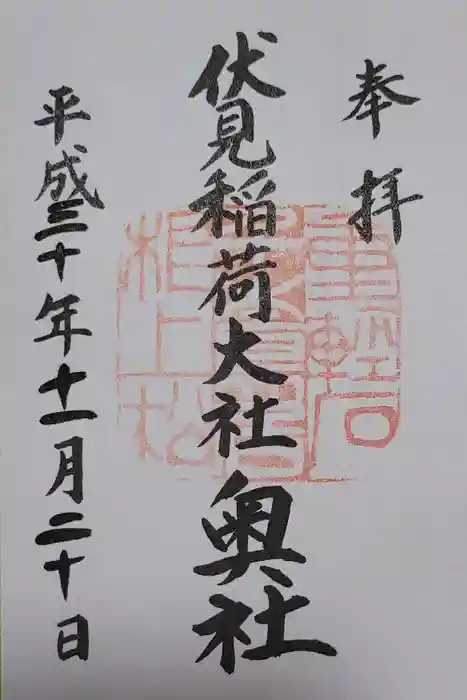 奉拝
伏見稲荷大社奥社
平成三十年十一月二十日